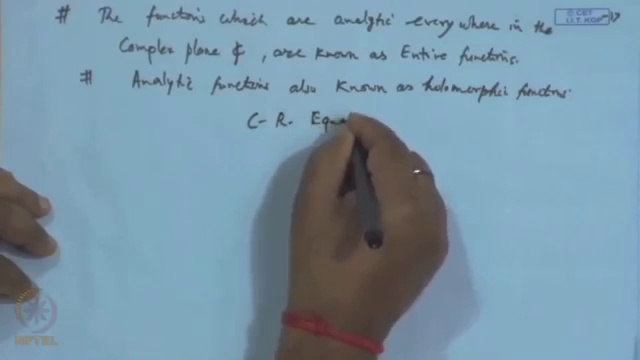 # The functions which are analytic everywhere in the
Complex plane ₵, are known as Entire functions.
# Analytic functions also known as holomorphic functions.
C-R. Equa
© CET
I.I.T. KGP
NPTEL